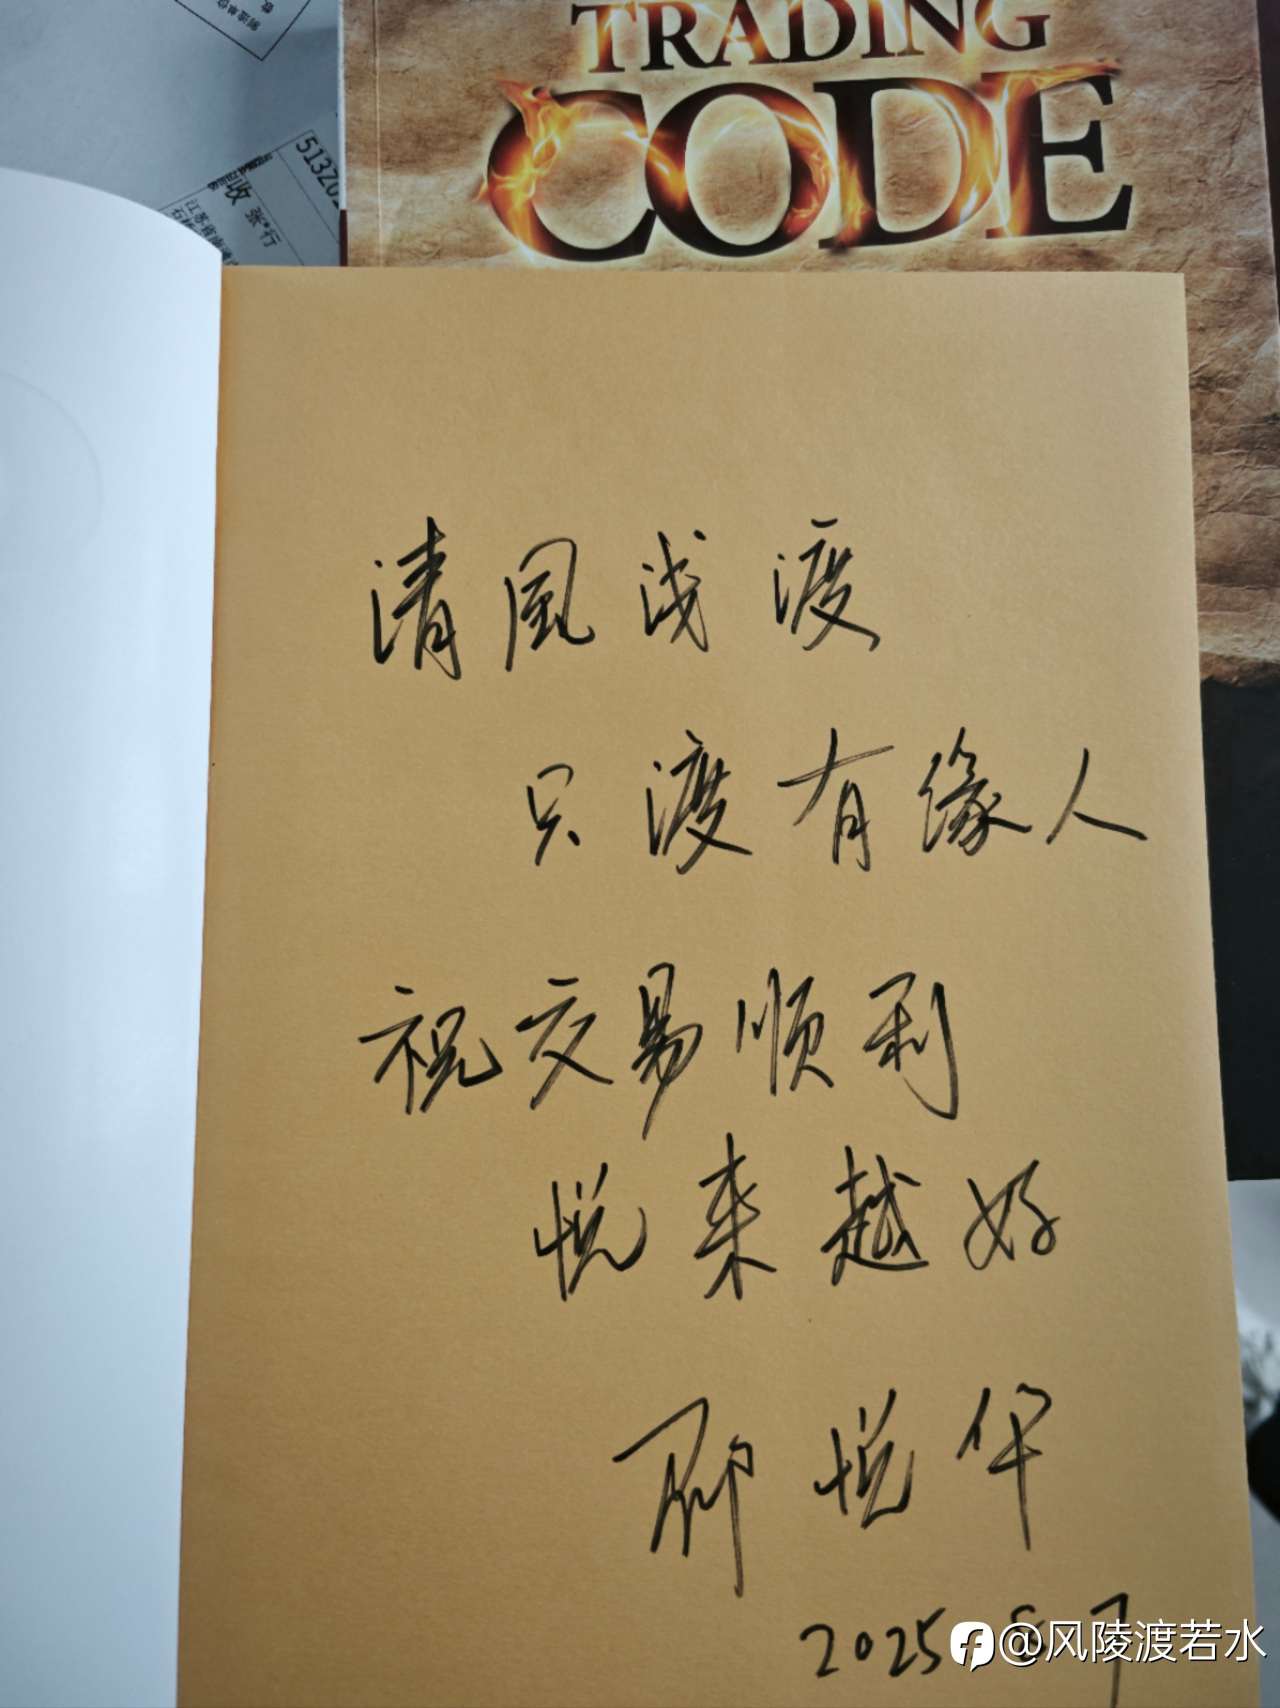 TRADING
CODE
收 张*行
清風浅渡
只渡有缘人
祝交易顺利
悦来越好
聊悦华
2025 8 7
@风陵渡若水